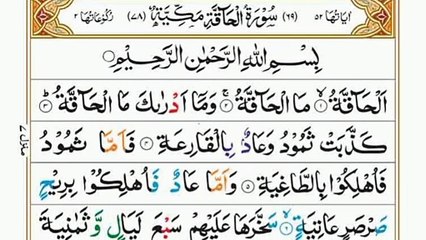 اٰيَاتُهَا ٥٢ (٦٩) سُوْرَةُ الْحَآقَّةِ مَكِّيَّةٌ (٧٨) رُكُوْعَاتُهَا ٢
بِسْمِ اللّٰهِ الرَّحْمٰنِ الرَّحِيْمِ
اَلْحَآقَّةُ ۙ١ مَا الْحَآقَّةُ ۚ٢ وَمَآ اَدْرٰىكَ مَا الْحَآقَّةُ ؕ٣
كَذَّبَتْ ثَمُوْدُ وَعَادٌۢ بِالْقَارِعَةِ ٤ فَاَمَّا ثَمُوْدُ
فَاُهْلِكُوْا بِالطَّاغِيَةِ ٥ وَاَمَّا عَادٌ فَاُهْلِكُوْا بِرِيْحٍ
صَرْصَرٍ عَاتِيَةٍ ۙ٦ سَخَّرَهَا عَلَيْهِمْ سَبْعَ لَيَالٍ وَّثَمٰنِيَةَ
منزل ٧